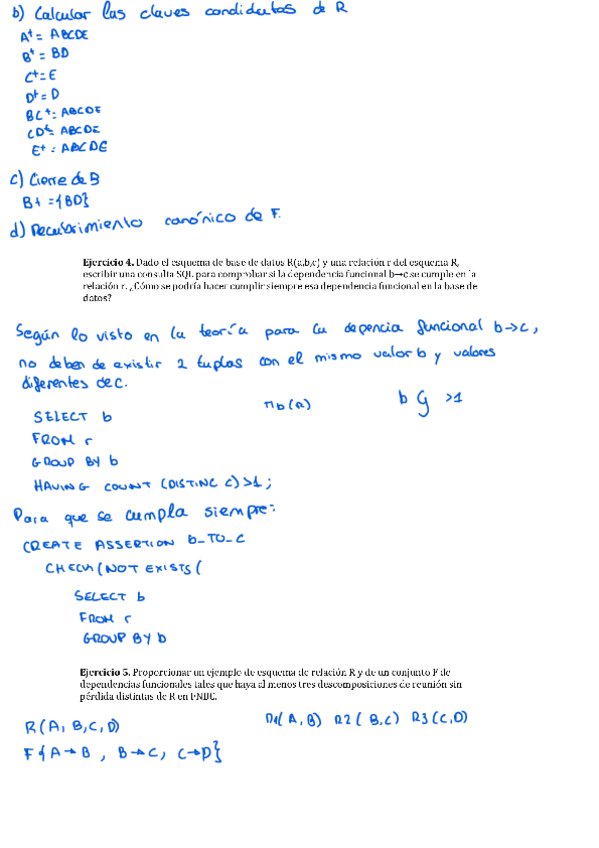 b) Calcular las claves candidatas de R
A+= ABCDE
B+= BD
C+=E
D+=D
BC+= ABCDE
CD+= ABCDE
E+= ABCDE
c) Cierre de B
B+ ={BD}
d) Recubrimiento canónico de F.
Ejercicio 4. Dado el esquema de base de datos R(a,b,c) y una relación r del esquema R,
escribir una consulta SQL para comprobar si la dependencia funcional b→c se cumple en la
relación r. ¿Cómo se podría hacer cumplir siempre esa dependencia funcional en la base de
datos?
Según lo visto en la teoría para la depencia funcional b->c,
no deben de existir 2 tuplas con el mismo valor b y valores
diferentes de c.
πb(r) b G >1
SELECT b
FROM r
GROUP BY b
HAVING COUNT (DISTINC c)>1;
Para que se cumpla siempre:
CREATE ASSERTION b_TO_C
CHECK(NOT EXISTS(
SELECT b
FROM r
GROUP BY b
Ejercicio 5. Proporcionar un ejemplo de esquema de relación R y de un conjunto F de
dependencias funcionales tales que haya al menos tres descomposiciones de reunión sin
pérdida distintas de R en FNBC.
R(A, B, C, D) R1(A, B) R2(B,C) R3(C,D)
F{A→B, B→C, C→D}